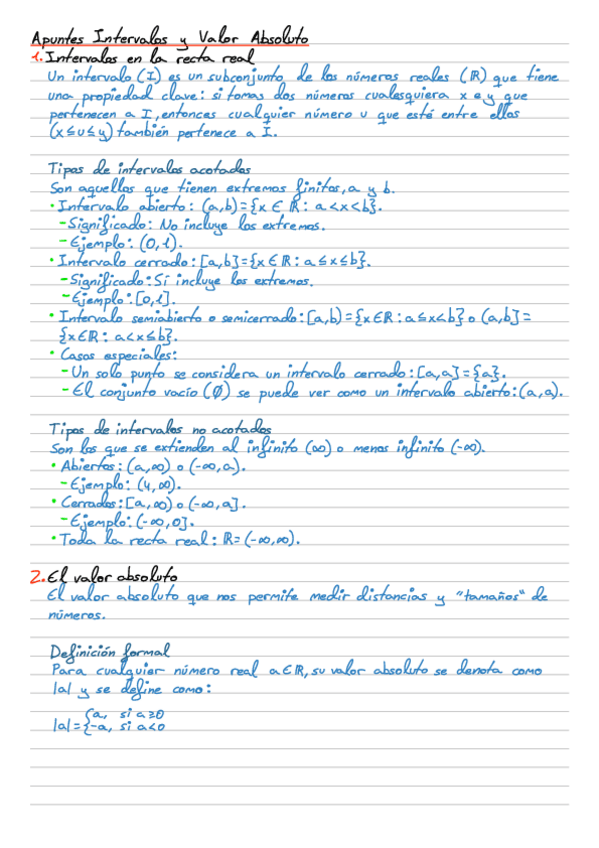 Apuntes Intervalos y Valor Absoluto
1. Intervalos en la recta real
Un intervalo (I) es un subconjunto de los números reales (ℝ) que tiene
una propiedad clave: si tomas dos números cualesquiera x e y que
pertenecen a I, entonces cualquier número u que esté entre ellos
(x≤u≤y) también pertenece a I.
Tipos de intervalos acotados
Son aquellos que tienen extremos finitos, a y b.
• Intervalo abierto: (a,b)={x∈ℝ: a<x<b}.
- Significado: No incluye los extremos.
- Ejemplo: (0,1).
• Intervalo cerrado: [a,b]={x∈ℝ: a≤x≤b}.
- Significado: Sí incluye los extremos.
- Ejemplo: [0,1].
• Intervalo semiabierto o semicerrado: [a,b)={x∈ℝ: a≤x<b} o (a,b]=
{x∈ℝ: a<x≤b}.
• Casos especiales:
- Un solo punto se considera un intervalo cerrado: [a,a]={a}.
- El conjunto vacío (∅) se puede ver como un intervalo abierto: (a,a).
Tipos de intervalos no acotados
Son los que se extienden al infinito (∞) o menos infinito (-∞).
• Abiertos: (a,∞) o (-∞,a).
- Ejemplo: (4,∞).
• Cerrados: [a,∞) o (-∞,a].
- Ejemplo: (-∞,0].
• Toda la recta real: ℝ=(-∞,∞).
2. El valor absoluto
El valor absoluto que nos permite medir distancias y "tamaños" de
números.
Definición formal
Para cualquier número real a∈ℝ, su valor absoluto se denota como
|a| y se define como:
|a|={a, si a≥0
{-a, si a<0